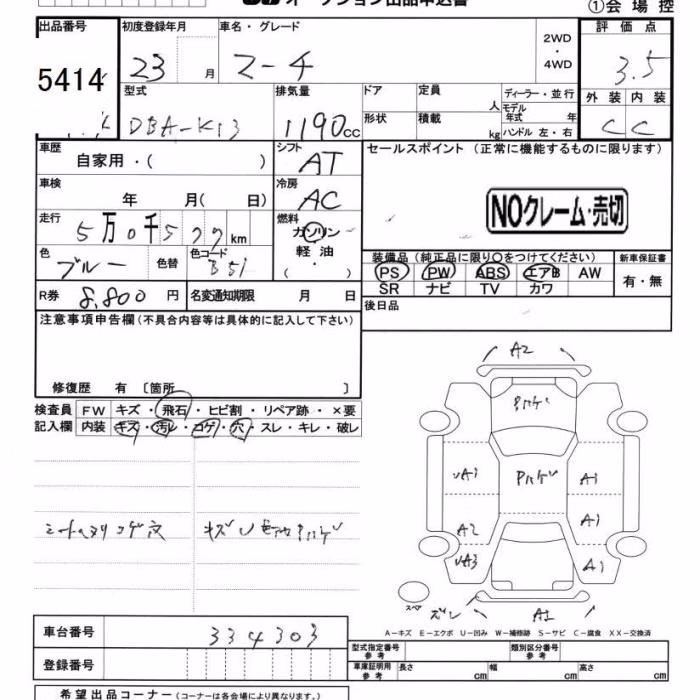 オークション出品申込書
①会場控
出品番号 初度登録年月 車名・グレード 2WD・4WD 評価点
5414 23 月 マーチ 3.5
型式 排気量 ドア 定員 人 ディーラー・並行 外装 内装
モデル年式 年
DBA-K13 1190cc 形状 積載 kg ハンドル 左・右 C C
車歴 自家用・( ) シフト AT セールスポイント (正常に機能するものに限ります)
車検 年 月( 日) 冷房 AC
NOクレーム・売切
走行 5万0千577km 燃料 ガソリン
軽油
・( )
色 ブルー 色替 色コード B51 装備品 (純正品に限り○をつけてください) 新車保証書
PS PW ABS エアB AW 有・無
SR ナビ TV カワ
R券 8,800円 名変通知期限 月 日 後日品
注意事項申告欄(不具合内容等は具体的に記入して下さい)
修復歴 有〔箇所 〕
検査員 FW キズ・飛石・ヒビ割・リペア跡・×要
記入欄 内装 キズ・汚レ・コゲ・穴・スレ・キレ・破レ
A2
A1
A1
A2
A1
A1
スペア
A-キズ E-エクボ U-凹み W-補修跡 S-サビ C-腐食 XX-交換済
車台番号 334303
型式指定番号 参考 類別区分番号 参考
登録番号 車庫証明用 参考 長さ cm 幅 cm 高さ cm
希望出品コーナー(コーナーは各会場により異なります。)